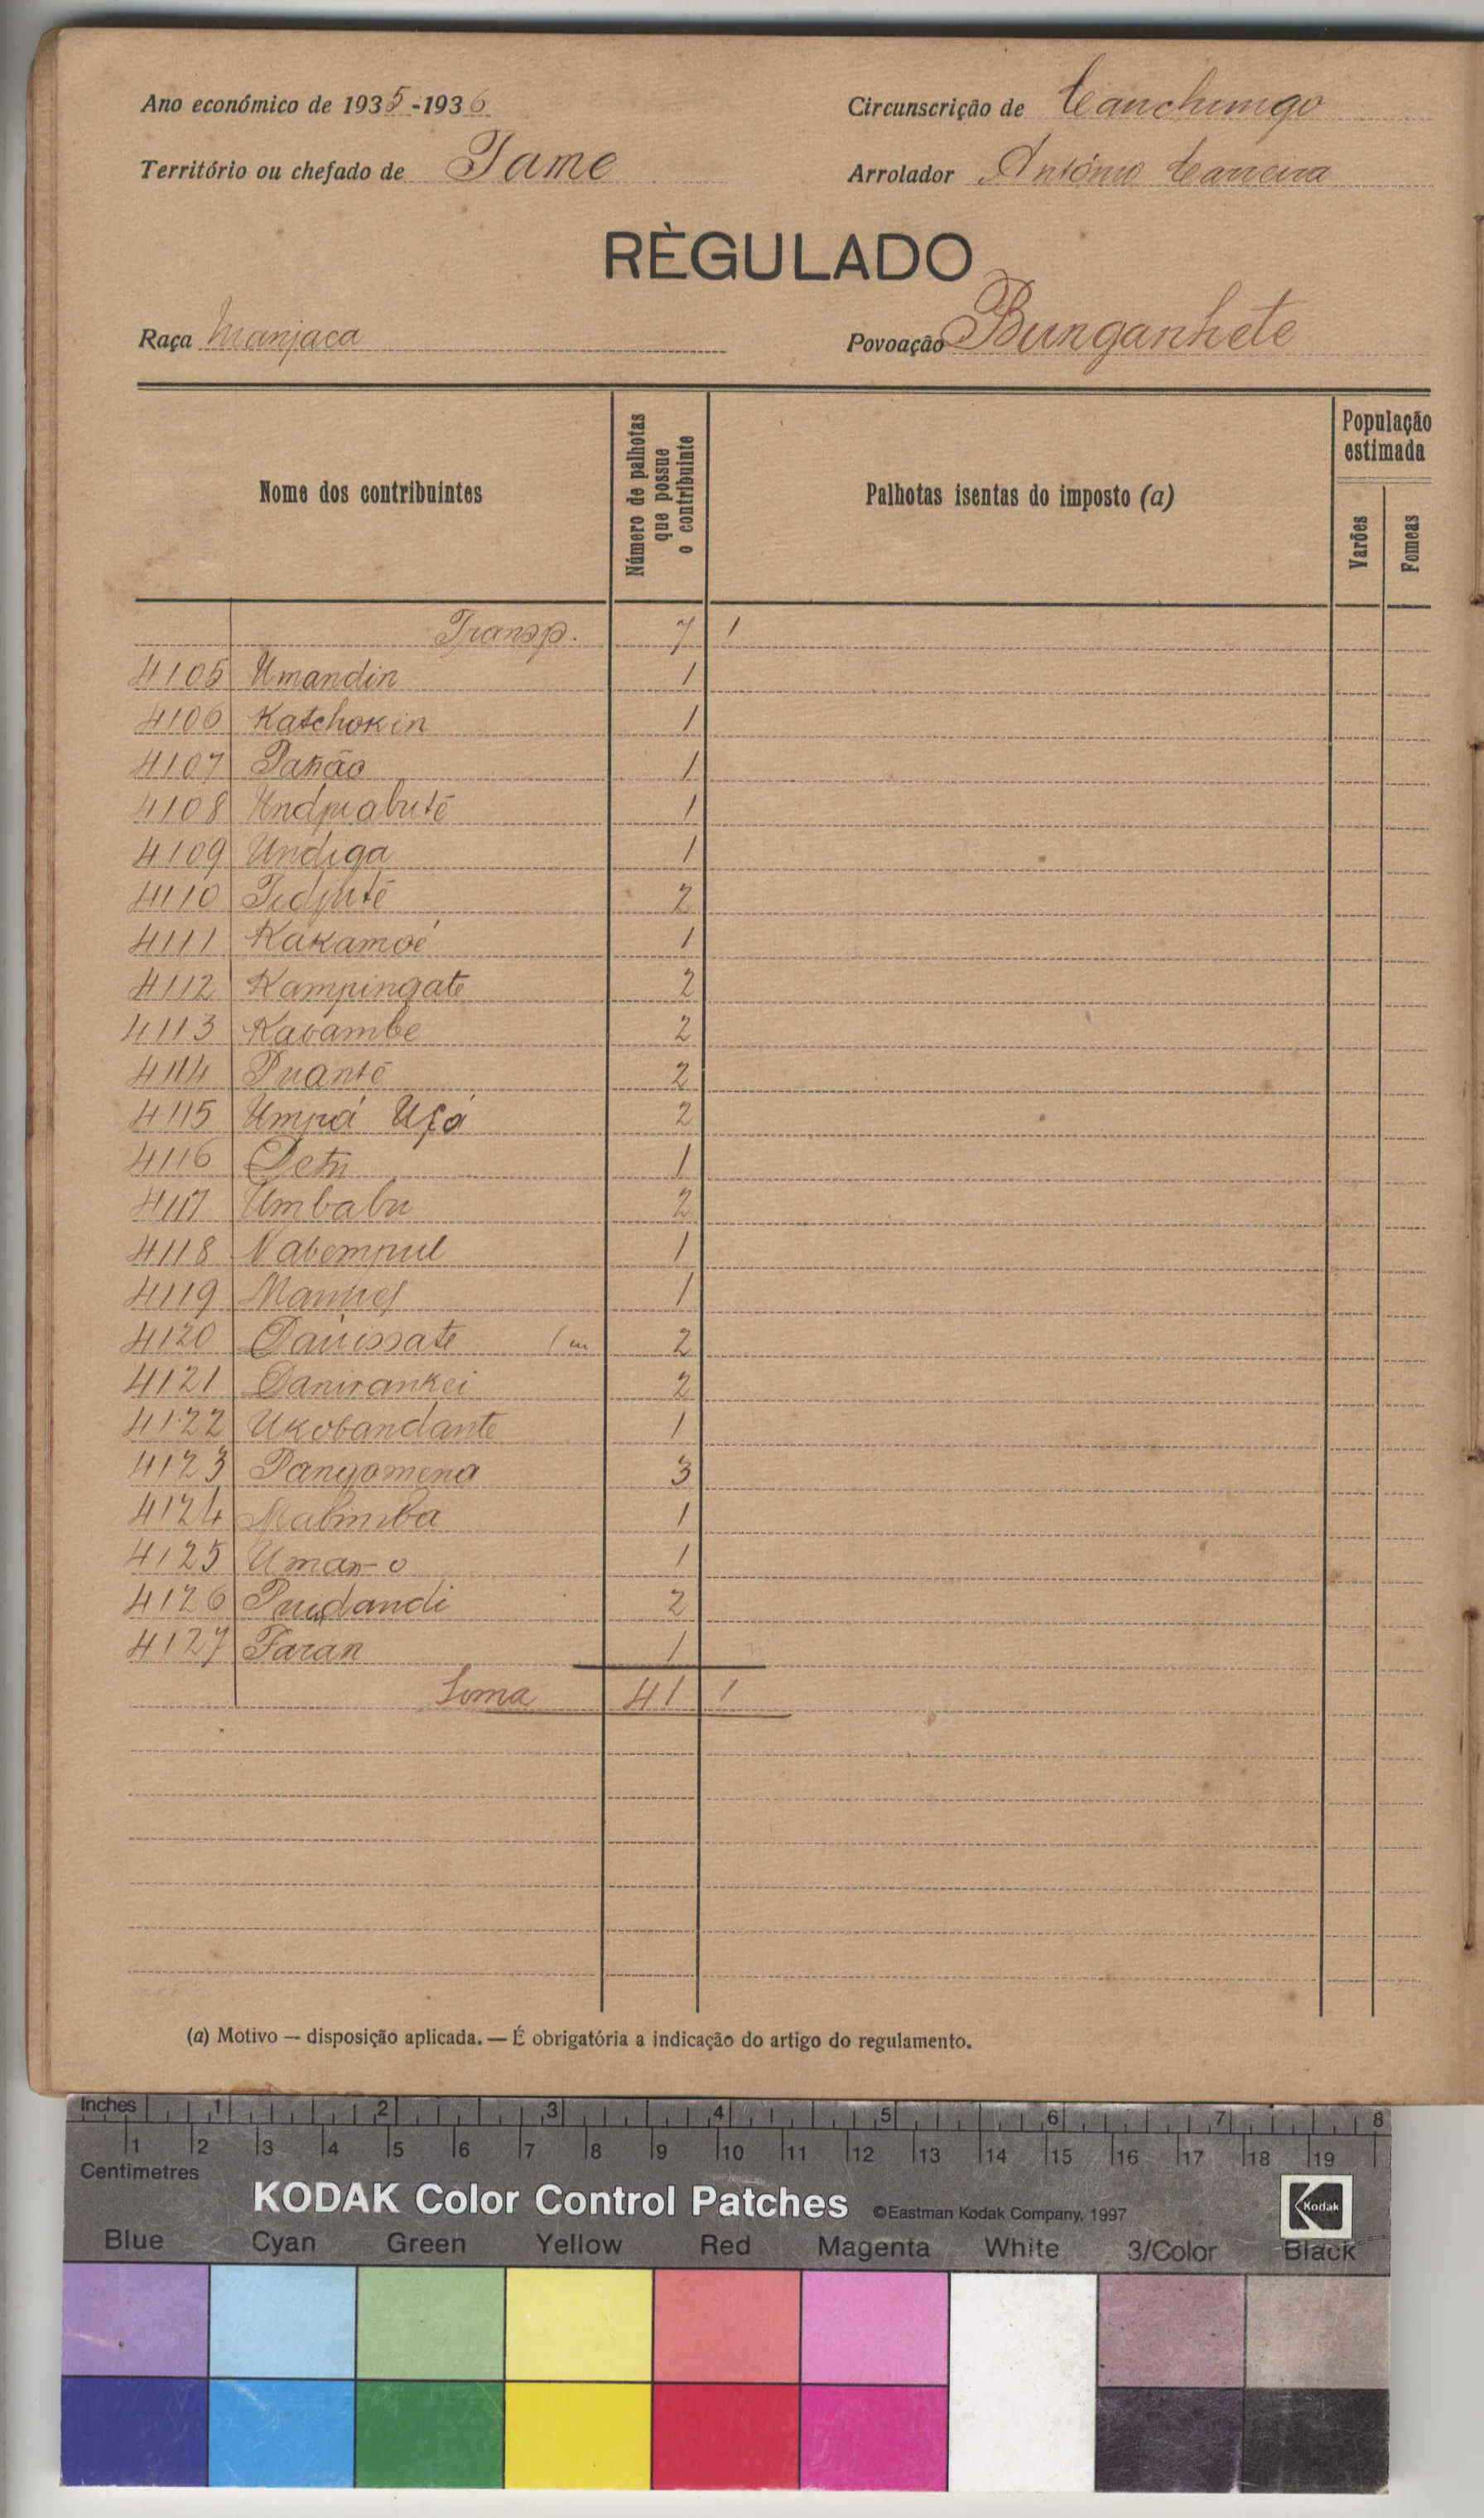 Ano económico de 1935-1936
Circunscrição de Canchungo
Território ou chefado de Tame
Arrolador António Carreira
RÈGULADO
Raça Manjaca
Povoação Bunganhete
Nome dos contribuintes
Número de palhotas que possue o contribuinte
Palhotas isentas do imposto (a)
População estimada
Varões
Fomeas
Transp. 7 1
4105 Umandin 1
4106 Katchokin 1
4107 1
4108 1
4109 Undiga 1
4110 2
4111 Kakamoé 1
4112 Kampingate 2
4113 2
4114 2
4115 Umpá Uçá 2
4116 1
4117 Umbabu 2
4118 1
4119 Manuel 1
4120 2
4121 2
4122 Ukobandante 1
4123 Pangomena 3
4124 Malimba 1
4125 1
4126 2
4127 Faran 1
Soma 41 1
(a) Motivo — disposição aplicada. — É obrigatória a indicação do artigo do regulamento.
Inches 1 2 3 4 5 6 7 8
1 2 3 4 5 6 7 8 9 10 11 12 13 14 15 16 17 18 19
Centimetres
KODAK Color Control Patches ©Eastman Kodak Company, 1997
Kodak
Blue Cyan Green Yellow Red Magenta White 3/Color Black